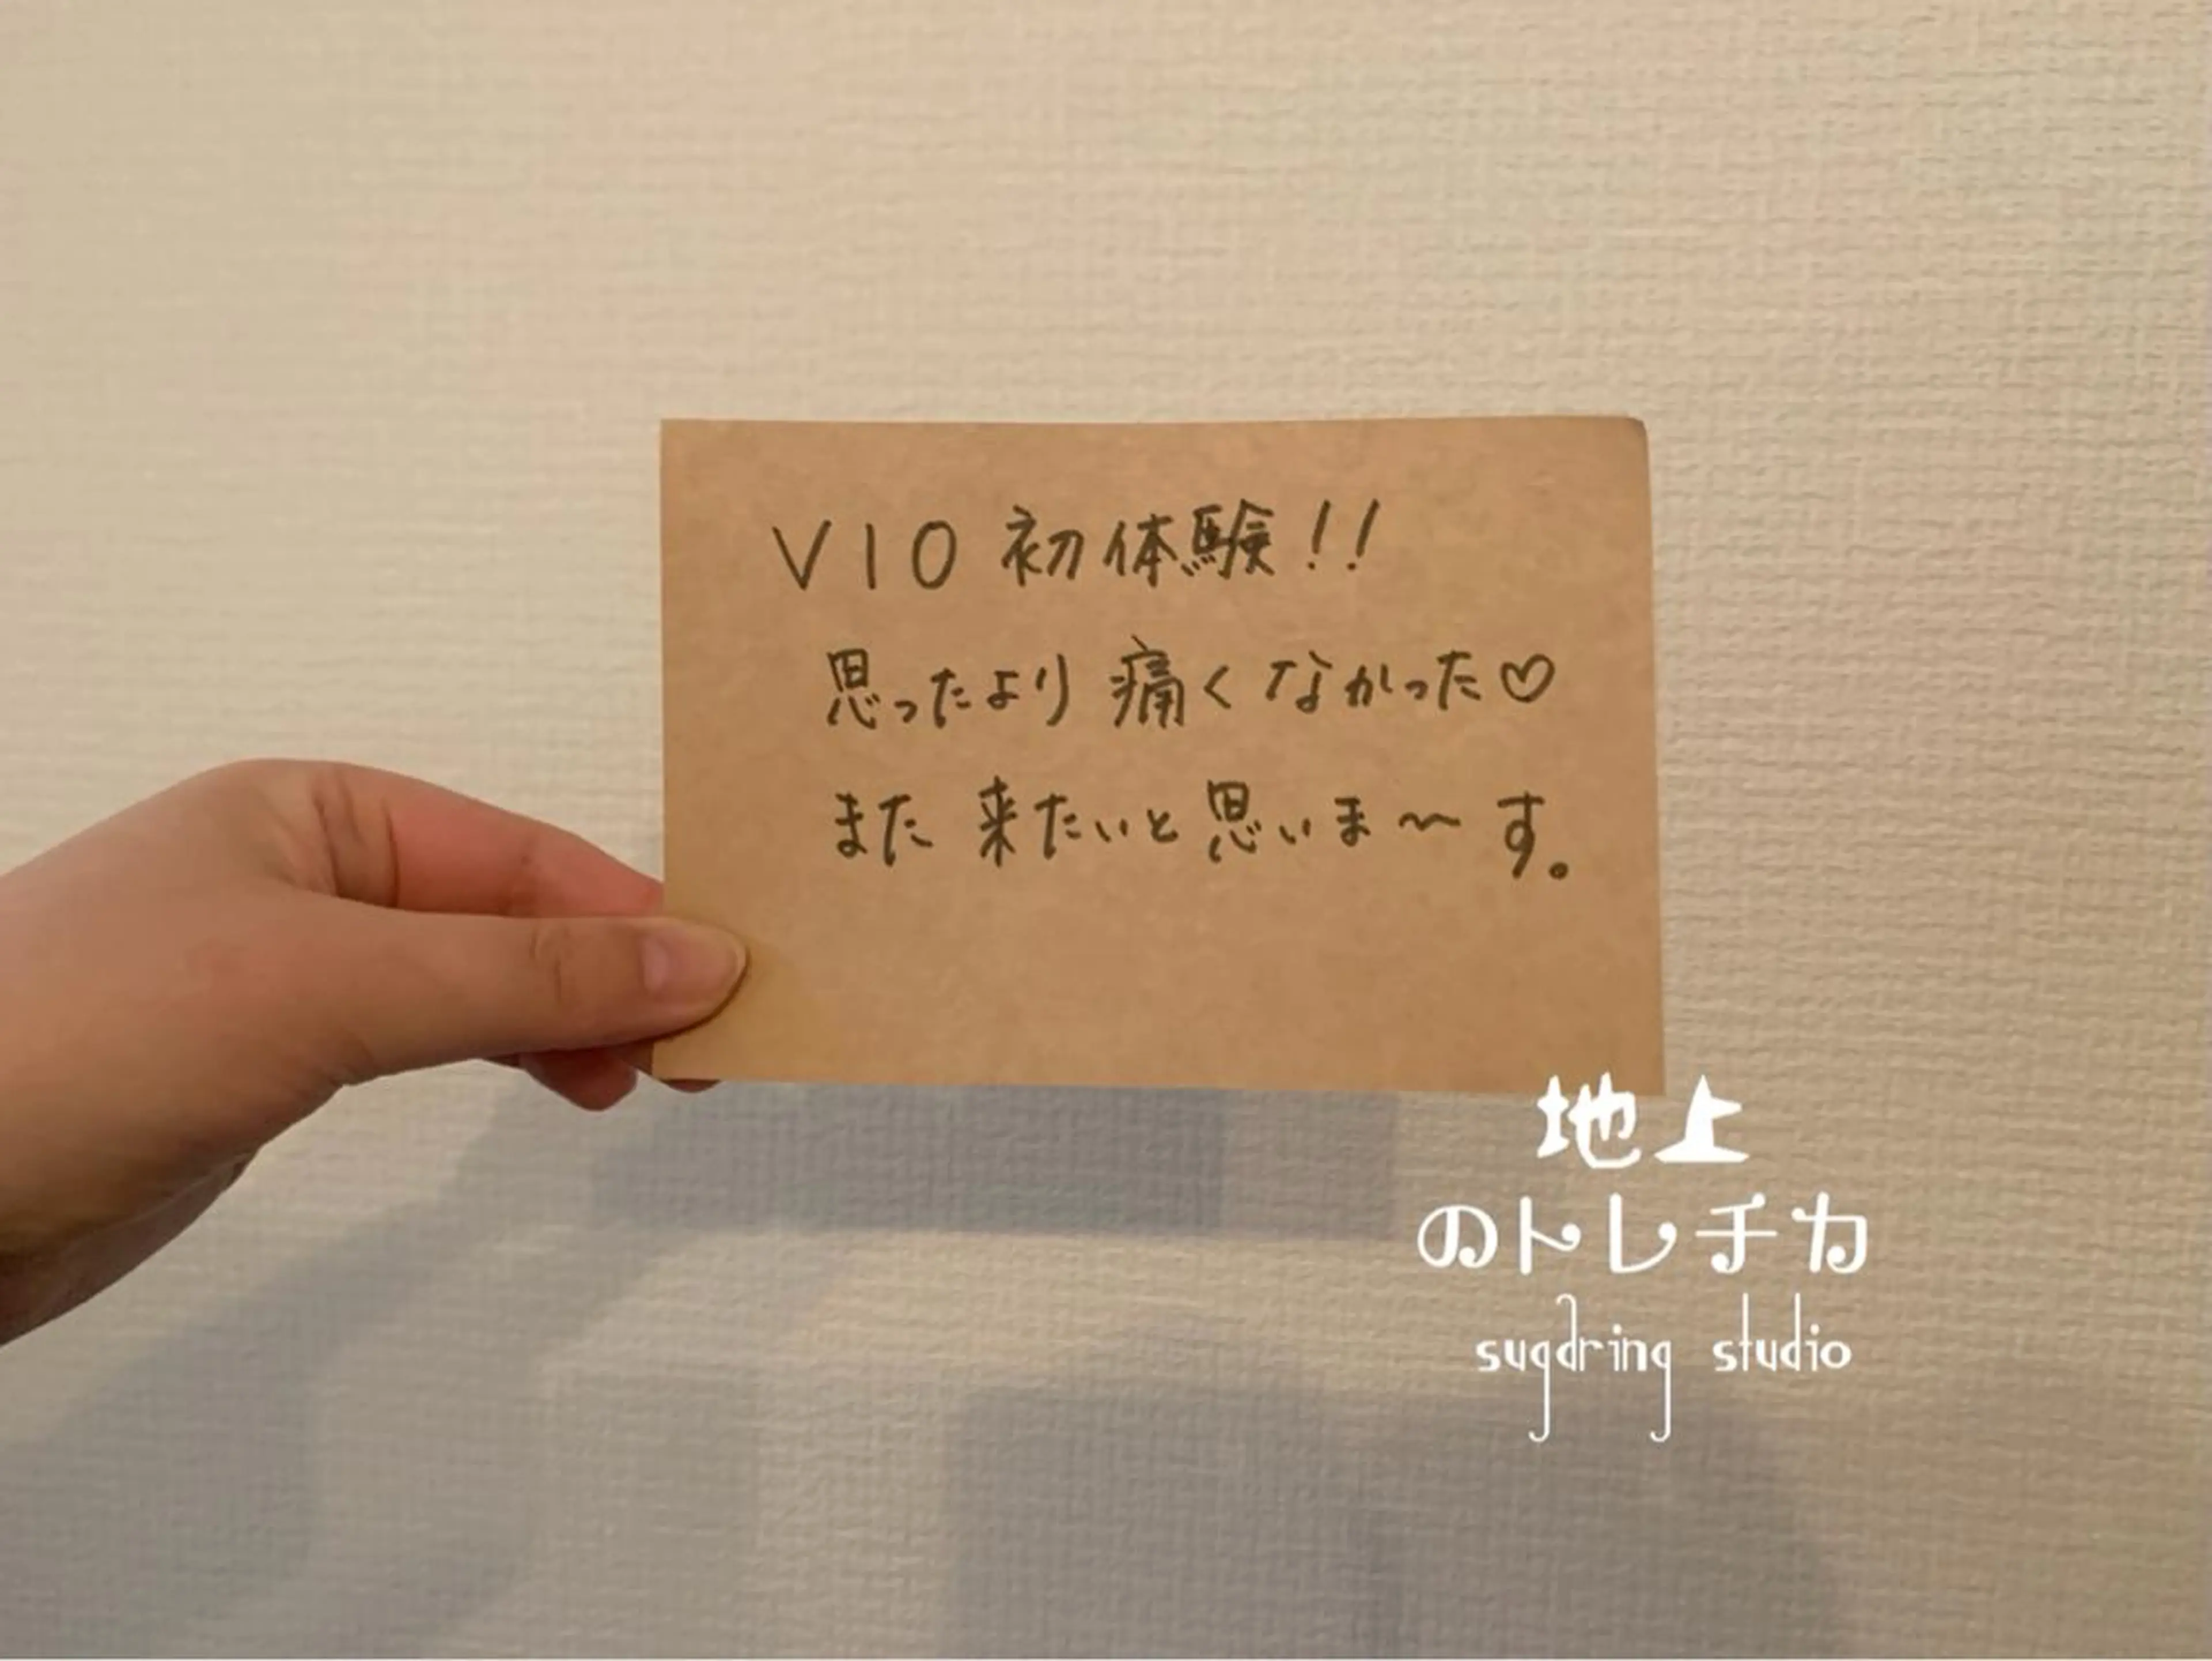 VIO 初体験!!
思ったより 痛くなかった♡
また 来たいと思いま〜す。
地上
のトレチカ
sugaring studio